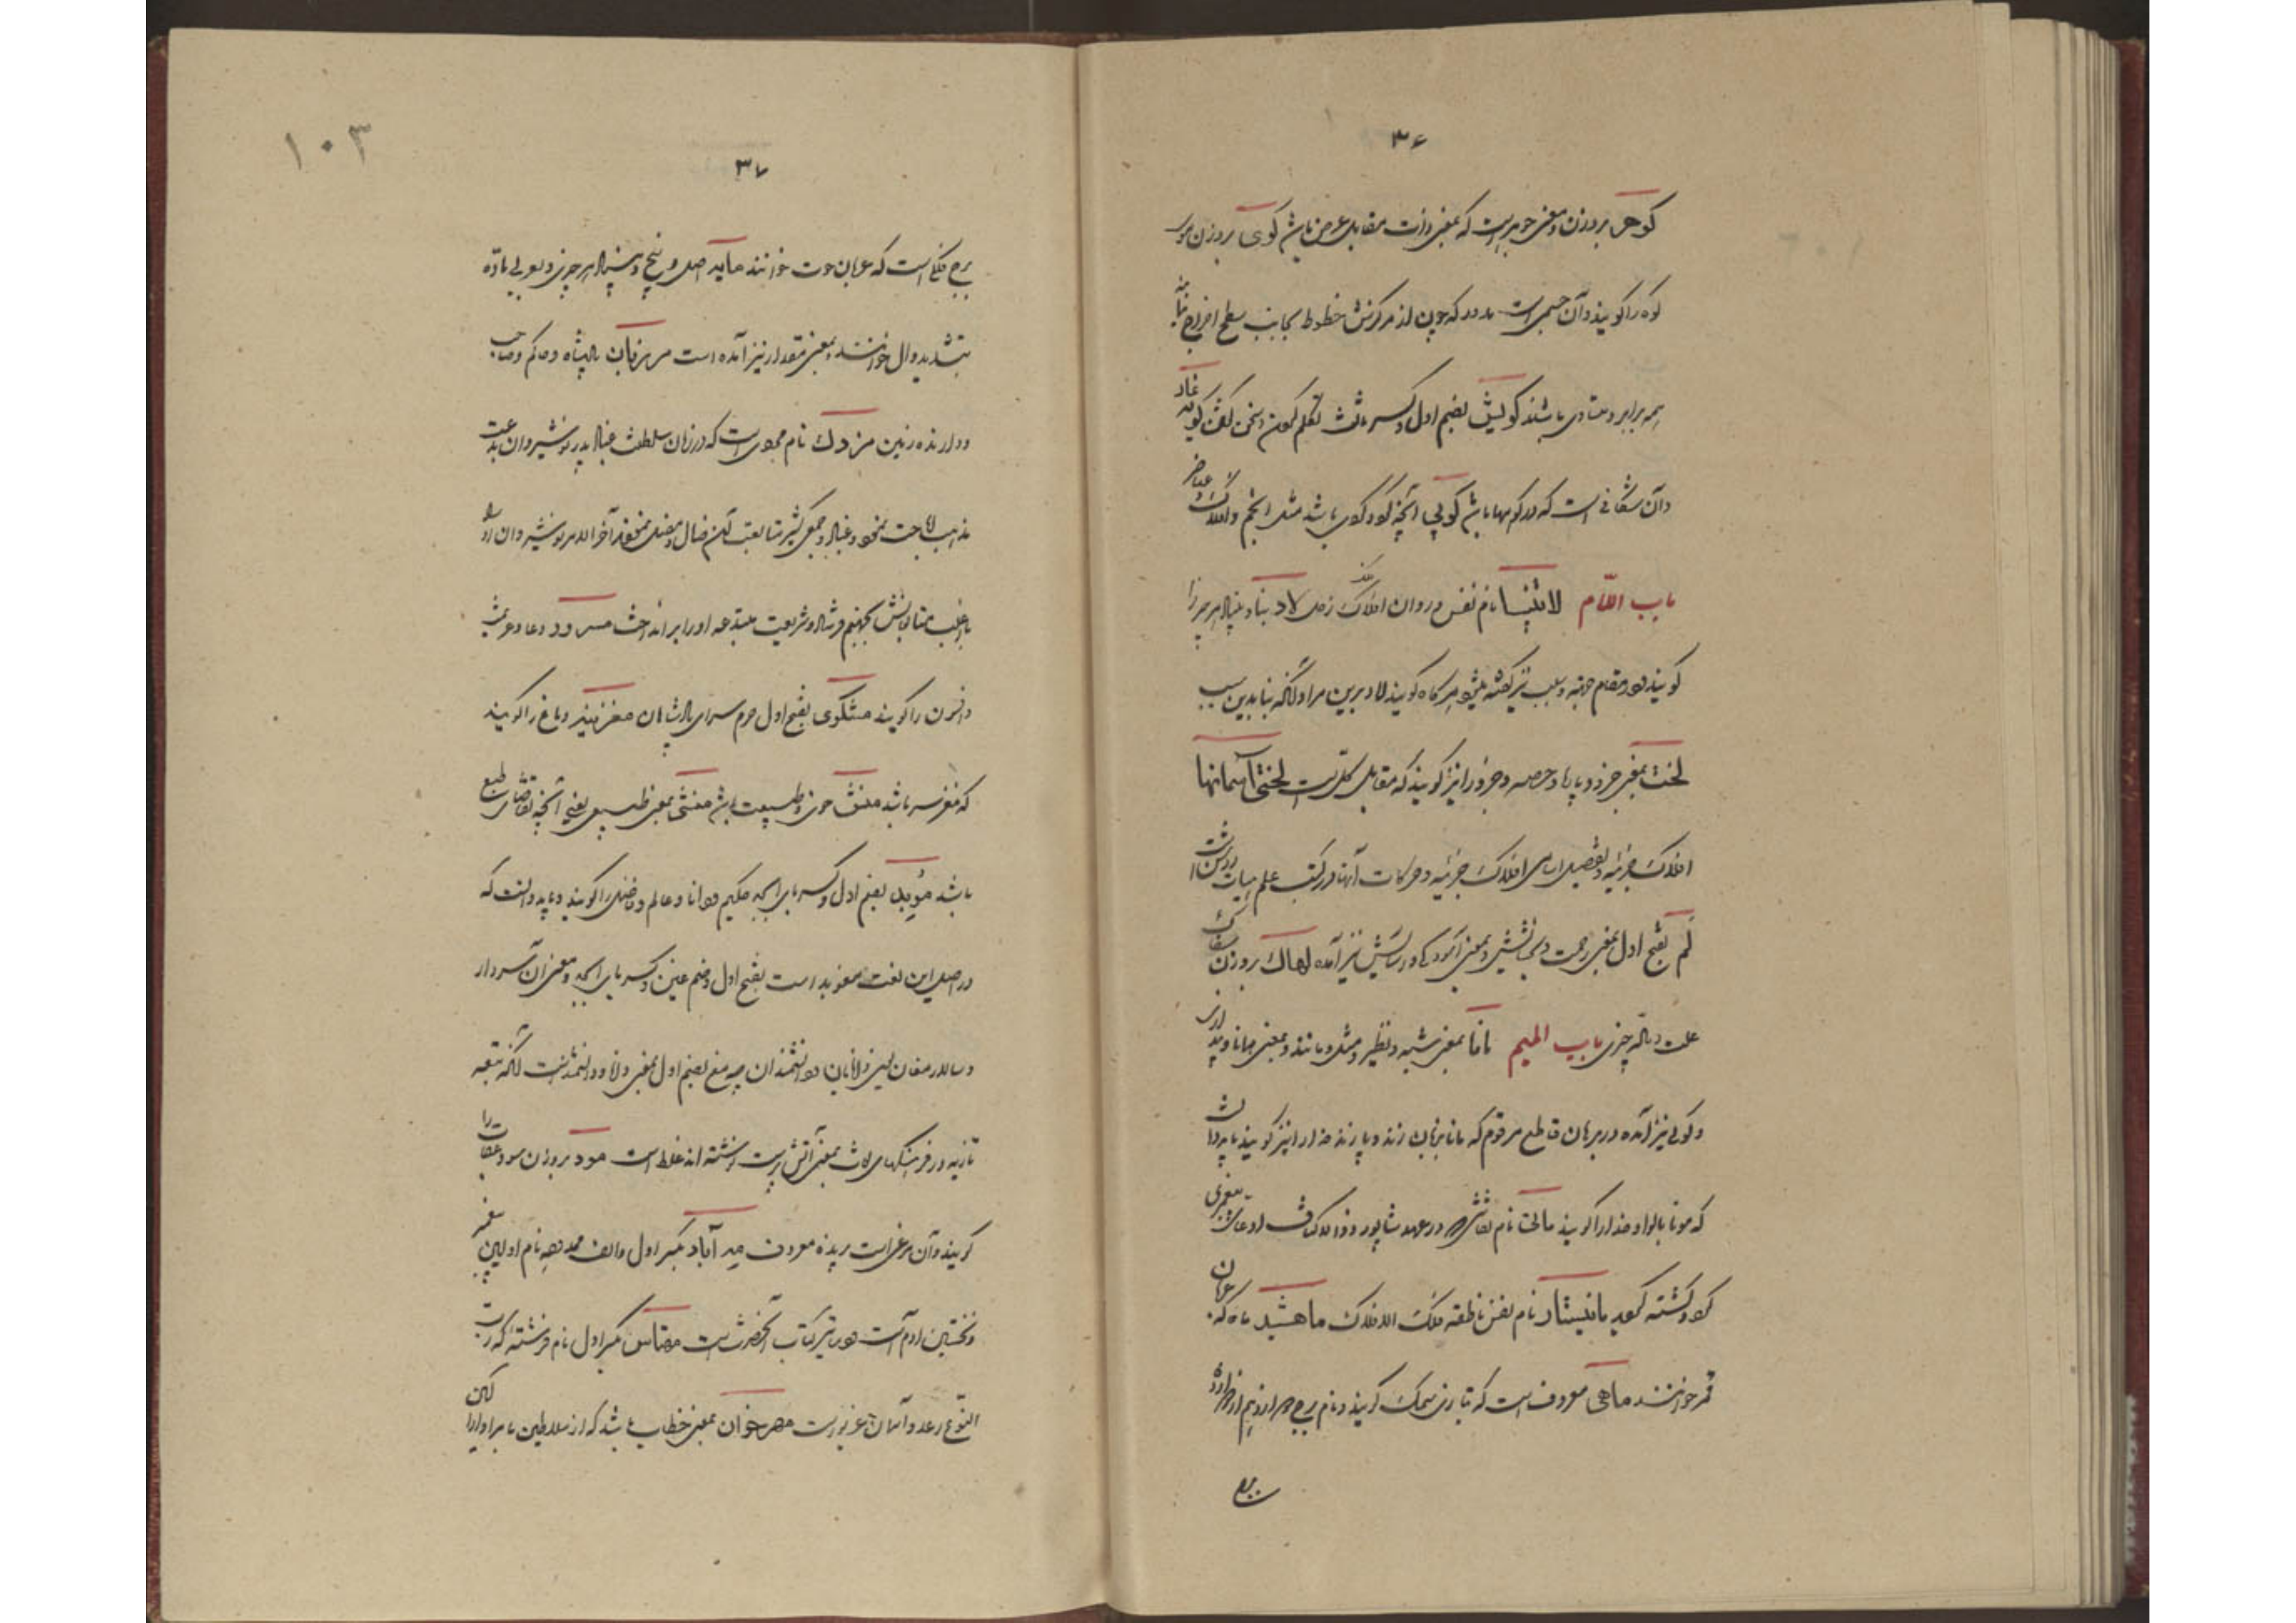 ۳۶
گوهر بروزن و معنی جوهر است که بمعنی ذات مقابل عرض باشد گوی بروزن موی
کره را گویند و آن جسمی است مدور که چون از مرکزش خطوط بجانب سطح اخراج نمایند
همه برابر و متساوی باشند گویش بضم اول و کسر ثالث تکلم کردن و سخن گفتن گویند غار
و آن شکافی است که در کوهها باشد گویی آنچه کروی باشد مثل انجم و افلاک و عناصر
باب اللام لاتینسا نام نفس و روان افلاک زحل لاد بنا و بنیاد هر چیز را
گویند و در مقام جهة و سبب نیز گفته میشود هرگاه گویند لاد برین مراد آنکه بنابدین سبب
لخت بمعنی جزء و پاره و حصه و جزو را نیز گویند که مقابل کل است لختی آسمانها
افلاک جزئیه و تفصیل اسامی افلاک جزئیه و حرکات آنها در کتب علم هیات روشن است
لم بفتح اول بمعنی رحمت و بخشایش و بمعنی آسودگی و آسایش نیز آمده لهاک بروزن
علت و ماله چیزی باب المیم مانا بمعنی شبه و نظیر و مثل و مانند و بمعنی همانا و پنداری
و گوئی نیز آمده در برهان قاطع مرقوم که مانا بزبان زند و پازند خدا را نیز گویند باید دانست
که مونا بالواو خدا را گویند مانی نام نقاشی در عهد شاپور ذوالاکتاف ادعای پیغمبری
کرد و کشته گردید مانیستار نام نفس ناطقه فلک الافلاک ماهشید ماه که عربان
قمر خوانند ماهی معروف است که بتازی سمک گویند و نام برج دوازدهم از دوازده
برج
۱۰۳
۳۷
برج فلکی است که عربان حوت خوانند مایه اصل و بیخ و بنیاد هر چیزی و بعربی ماده
بتشدید دال خوانند و بمعنی مقدار نیز آمده است مرزبان پادشاه و حاکم و صاحب
و دارنده زمین مزدک نام مجوسی است که در زمان سلطنت قباد پدر نوشیروان بدعت
مذهب اباحت نمود و قباد و جمعی کثیر متابعت آن ضال مضل نمودند آخر الامر نوشیروان او را
با اغلب متابعانش بجهنم فرستاد و شریعت مبتدعه او را برانداخت مسرود دعا و عزیمت
و افسون را گویند مشکوی بفتح اول حرم سرای پادشاهان مغز بنیه دماغ را گویند
که مغز سر باشد منش خوی و طبیعت باشد منشی بمعنی طبیعی یعنی آنچه تقاضای طبع
باشد موبد بضم اول و کسر بای ابجد حکیم و دانا و عالم و فاضل را گویند و باید دانست که
در اصل این لغت مغوبد است بفتح اول و ضم غین و کسر بای ابجد و معنی آن سردار
و سالار مغان یعنی دانایان و دانشمندان چه مغ بضم اول بمعنی دانا و دانشمند است آنکه بتبعه
تازیه در فرهنگهای لغات بمعنی آتش پرست نوشته اند غلط است مود بروزن سود عقاب را
گویند و آن مرغی است پرنده معروف مه آباد بکسر اول والف ممدوده نام اولین پیغمبر
و نخستین آدم است و دساتیر کتاب آنحضرت است مهتاس بکسر اول نام فرشته که رب
النوع رعد و آسمان غریو است مهرخوان بمعنی خطاب باشد که از سلاطین بامرا و ارکان